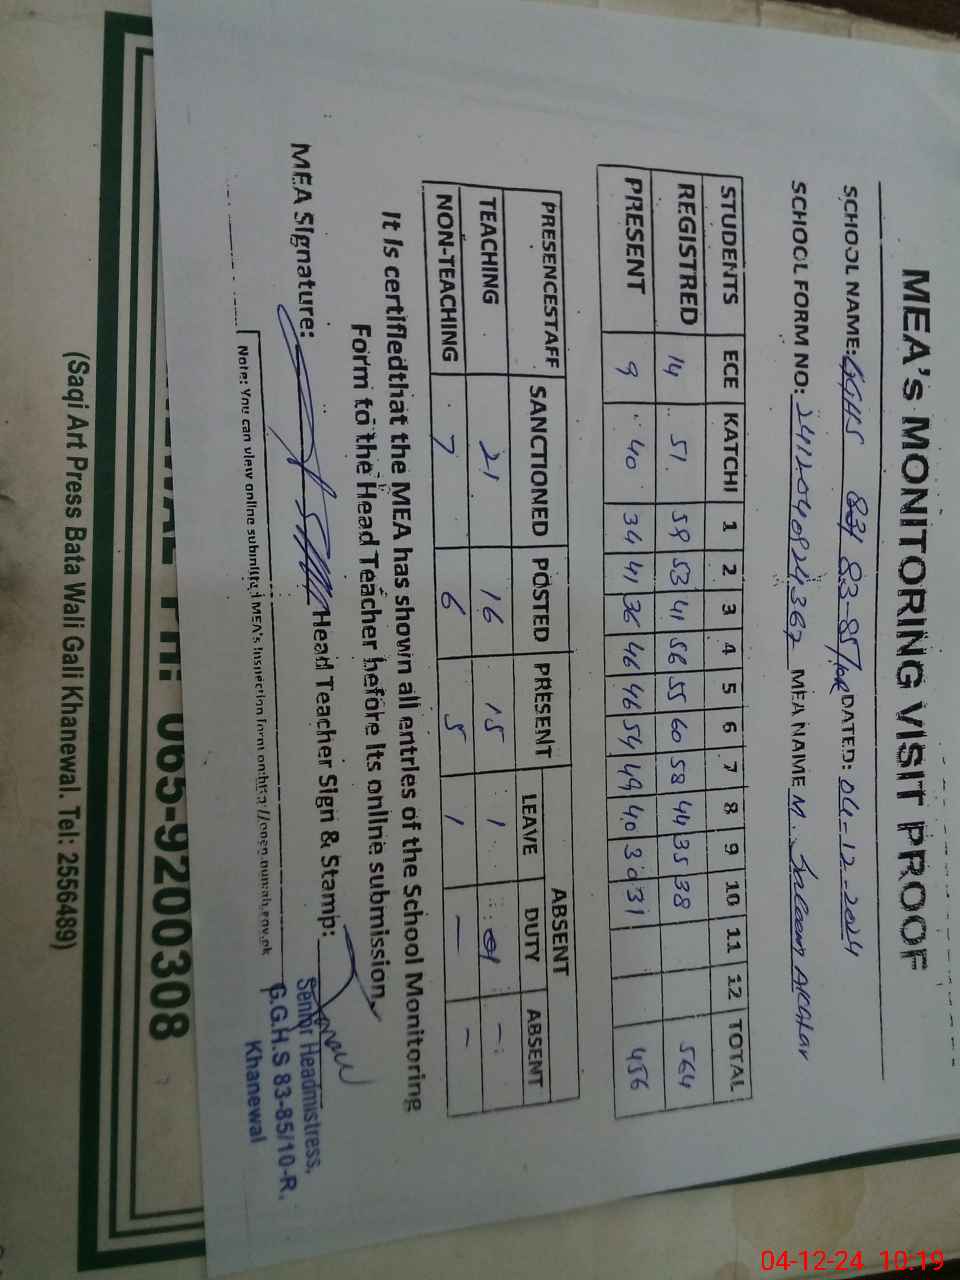 MEA's MONITORING VISIT PROOF
SCHOOL NAME: GGHS 83-85/10R DATED: 04-12-2024
SCHOOL FORM NO: MEA NAME M. Saleem Akhtar
STUDENTS ECE KATCHI 1 2 3 4 5 6 7 8 9 10 11 12 TOTAL
REGISTRED 14 51 59 53 41 56 55 60 58 44 35 38 564
PRESENT 9 40 34 41 36 46 46 54 49 40 30 31 456
PRESENCESTAFF SANCTIONED POSTED PRESENT ABSENT
LEAVE DUTY ABSENT
TEACHING 21 16 15 1 -
NON-TEACHING 7 6 5 1 - -
It is certifiedthat the MEA has shown all entries of the School Monitoring
Form to the Head Teacher before its online submission.
MEA Signature: Head Teacher Sign & Stamp:
Senior Headmistress,
G.G.H.S 83-85/10-R.
Khanewal
Note: You can view online submitted MEA's Inspection form on http://open.punjab.gov.pk
PH: 065-9200308
(Saqi Art Press Bata Wali Gali Khanewal. Tel: 2556489)
04-12-24 10:19